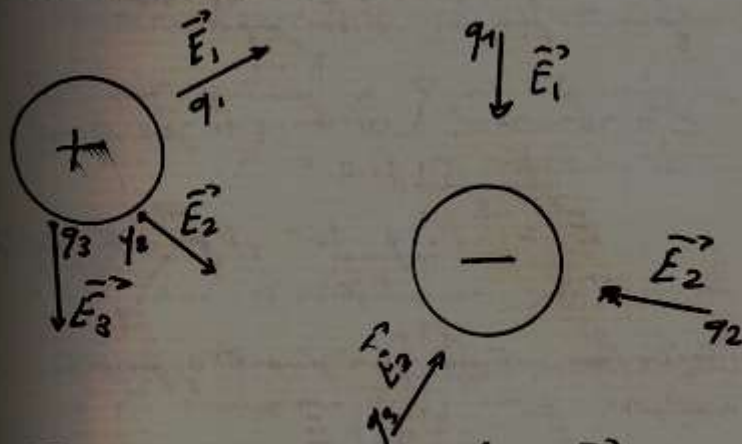 E₁
q₁
+
q₃ q₂ E₂
E₃
q₁ E₁
−
E₂
q₂
E₃